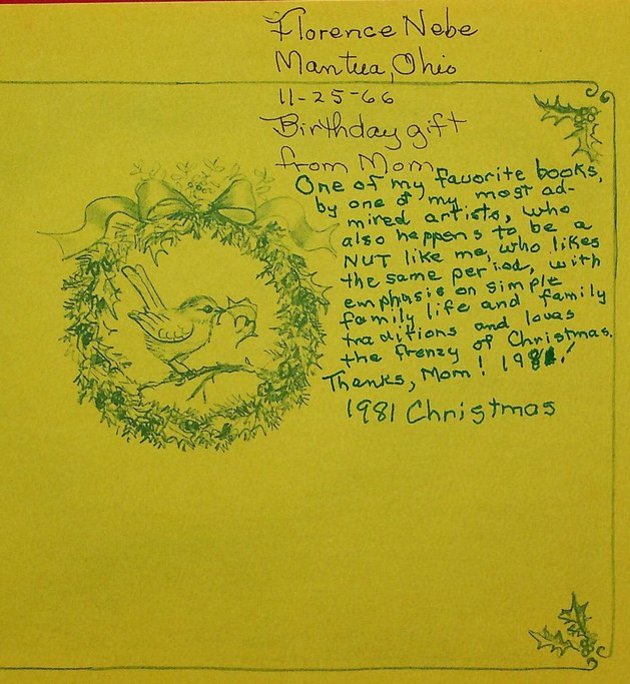 Florence Nebe
Mantua, Ohio
11-25-66
Birthday gift
from Mom
One of my favorite books,
by one of my most ad-
mired artists, who
also happens to be a
NUT like me, who likes
the same period, with
emphasis on simple
family life and family
traditions and loves
the frenzy of Christmas.
Thanks, Mom! 1981!
1981 Christmas